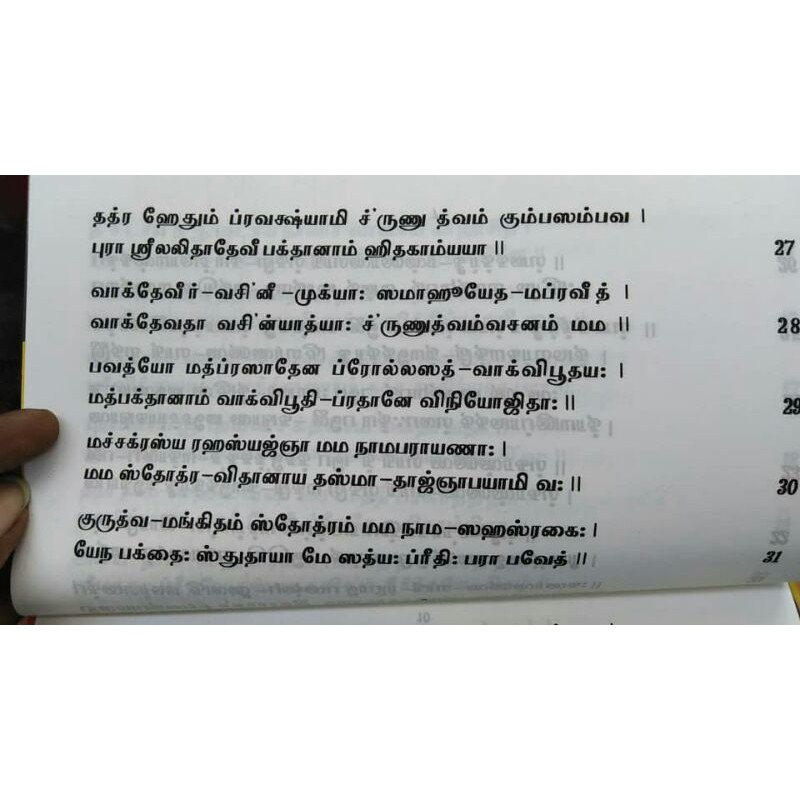 தத்ர ஹேதும் ப்ரவக்ஷ்யாமி ச்'ருணு த்வம் கும்பஸம்பவ |
புரா ஸ்ரீலலிதாதேவீ பக்தானாம் ஹிதகாம்யயா || 27
வாக்தேவீர்-வசி'னீ-முக்யா: ஸமாஹூயேத-மப்ரவீத் |
வாக்தேவதா வசி'ன்யாத்யா: ச்'ருணுத்வம்வசனம் மம || 28
பவத்யோ மத்ப்ரஸாதேன ப்ரோல்லஸத்-வாக்விபூதய: |
மத்பக்தானாம் வாக்விபூதி-ப்ரதானே விநியோஜிதா: || 29
மச்சக்ரஸ்ய ரஹஸ்யஜ்ஞா மம நாமபராயணா: |
மம ஸ்தோத்ர-விதானாய தஸ்மா-தாஜ்ஞாபயாமி வ: || 30
குருத்வ-மங்கிதம் ஸ்தோத்ரம் மம நாம-ஸஹஸ்ரகை: |
யேந பக்தை: ஸ்துதாயா மே ஸத்ய: ப்ரீதி: பரா பவேத் || 31
10